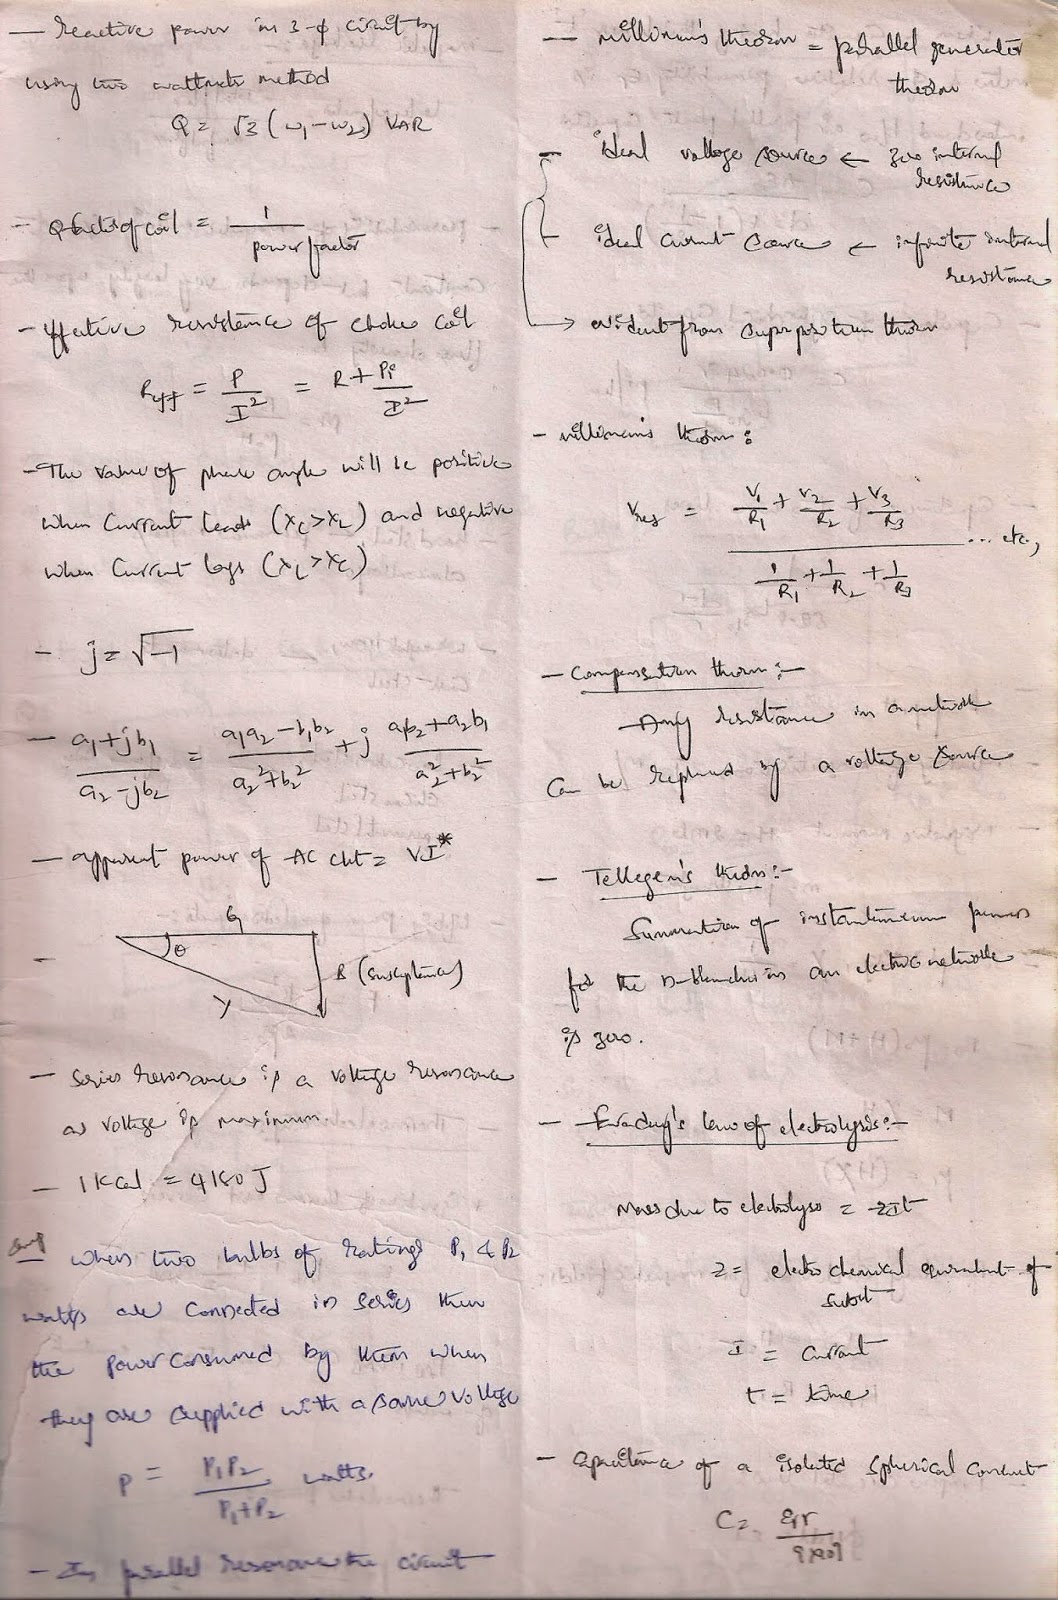 — Reactive power in 3-φ circuit by
using two wattmeter method
Q = √3 (w₁ - w₂) VAR
- Q factor of coil = 1 / power factor
- effective resistence of choke coil
Reff = P / I² = R + Pi / I²
- The value of phase angle will be positive
when current leads (Xc > XL) and negative
when current lags (XL > Xc)
- j = √-1
- a₁+jb₁ / a₂-jb₂ = a₁a₂-b₁b₂ / a₂²+b₂² + j a₁b₂+a₂b₁ / a₂²+b₂²
- apparent power of AC ckt = VI*
G
θ
B (susceptance)
Y
- Series resonance is a voltage resonance
as voltage is maximum.
- 1 Kcal = 4180 J
when two bulbs of ratings P₁ & P₂
watts are connected in series then
the power consumed by them when
they are supplied with a same voltage
P = P₁P₂ / P₁+P₂ watts.
- In parallel resonance the circuit
— millman's theorem = parallel generator
theorem
- ideal voltage source ← zero internal
resistance
- ideal current source ← infinite internal
resistance
→ evident from superposition theorem
- millman's theorem :
= V₁/R₁ + V₂/R₂ + V₃/R₃ / 1/R₁ + 1/R₂ + 1/R₃ ... etc.,
- Compensation theorem :-
Any resistance in a network
can be replaced by a voltage source
- Tellegen's theorem :-
Summation of instantaneous powers
for the n-branches in an electric network
is zero.
- Faraday's law of electrolysis :-
Mass due to electrolysis = ZIt
Z = electro chemical equivalent of
subst
I = current
t = time
- Capacitance of a isolated spherical conduct
C = εr r / 9×10⁹